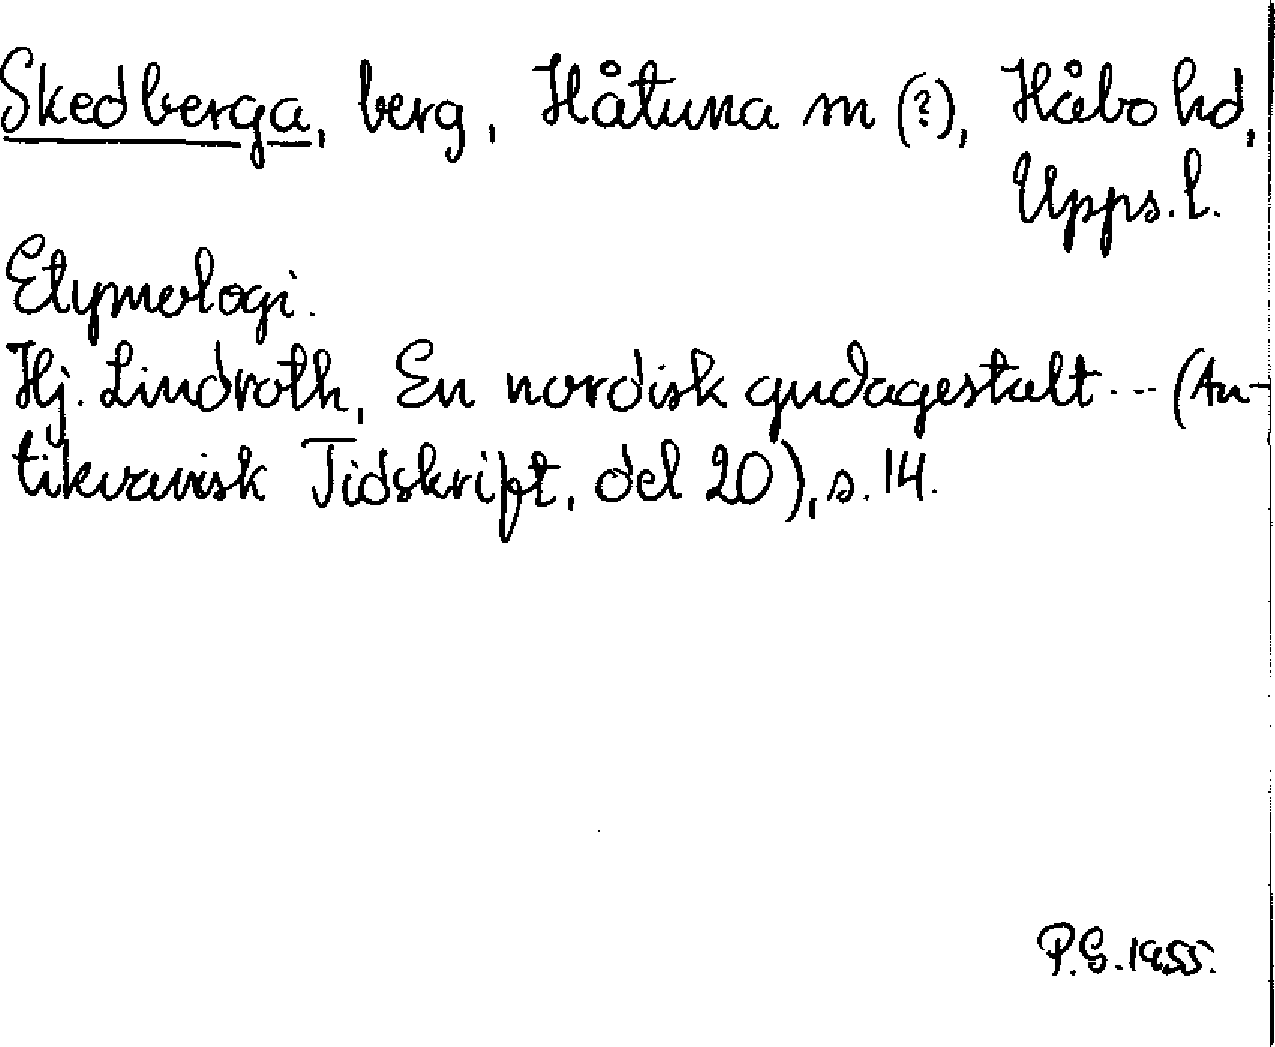 Skedberga, berg, Håtuna sn (?), Håbo hd,
Upps. l.
Etymologi.
Hj. Lindroth, En nordisk gudagestalt --- (An-
tikvarisk Tidskrift, del 20), s. 14.
P.G. 1955.